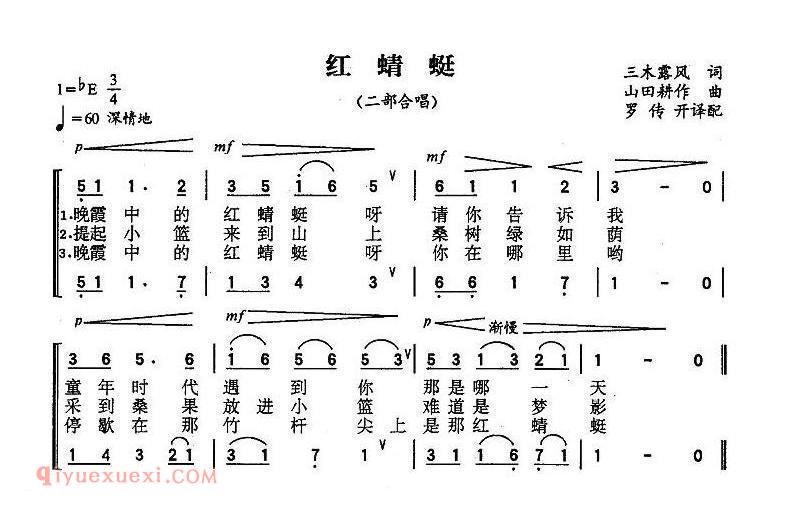 红蜻蜓
(二部合唱)
1=♭E 3/4
♩=60 深情地
三木露风 词
山田耕作 曲
罗传开译配
p mf mf
5 1 1. 2 | 3 5 i 6 5 ∨ | 6 1 1 2 | 3 - 0
1.晚霞中的红蜻蜓呀 请你告诉我
2.提起小篮来到山上 桑树绿如荫
3.晚霞中的红蜻蜓呀 你在哪里哟
5 1 1. 7 | 1 3 4 3 ∨ | 6 6 1 7 | 1 - 0
p mf p 渐慢
3 6 5. 6 | i 6 5 6 5 3 ∨ | 5 3 1 3 2 1 | 1 - 0
童年时代遇到你 那是哪一天
采到桑果放进小篮 难道是梦影
停歇在那竹杆尖上 是那红蜻蜓
1 4 3 2 1 | 3 1 7 1 ∨ | 3 1 6 1 7 1 | 1 - 0
Qiyuexuexi.com